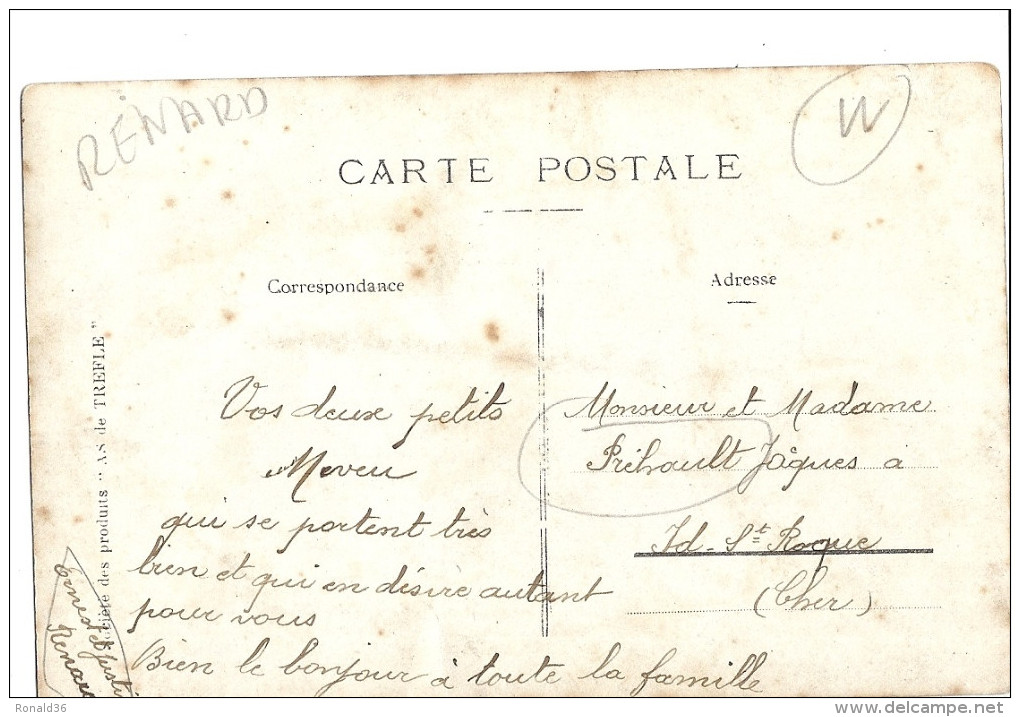 RENARD
W
CARTE POSTALE
Correspondance
Adresse
Société des produits "AS de TREFLE"
Vos deux petits
Neveu
qui se portent très
bien et qui en désire autant
pour vous
Bien le bonjour à toute la famille
Monsieur et Madame
Préhault Jâques a
Id-St-Roque
(Cher)
Ernest et Justi
Renard
Ronald36
www.delcampe.net